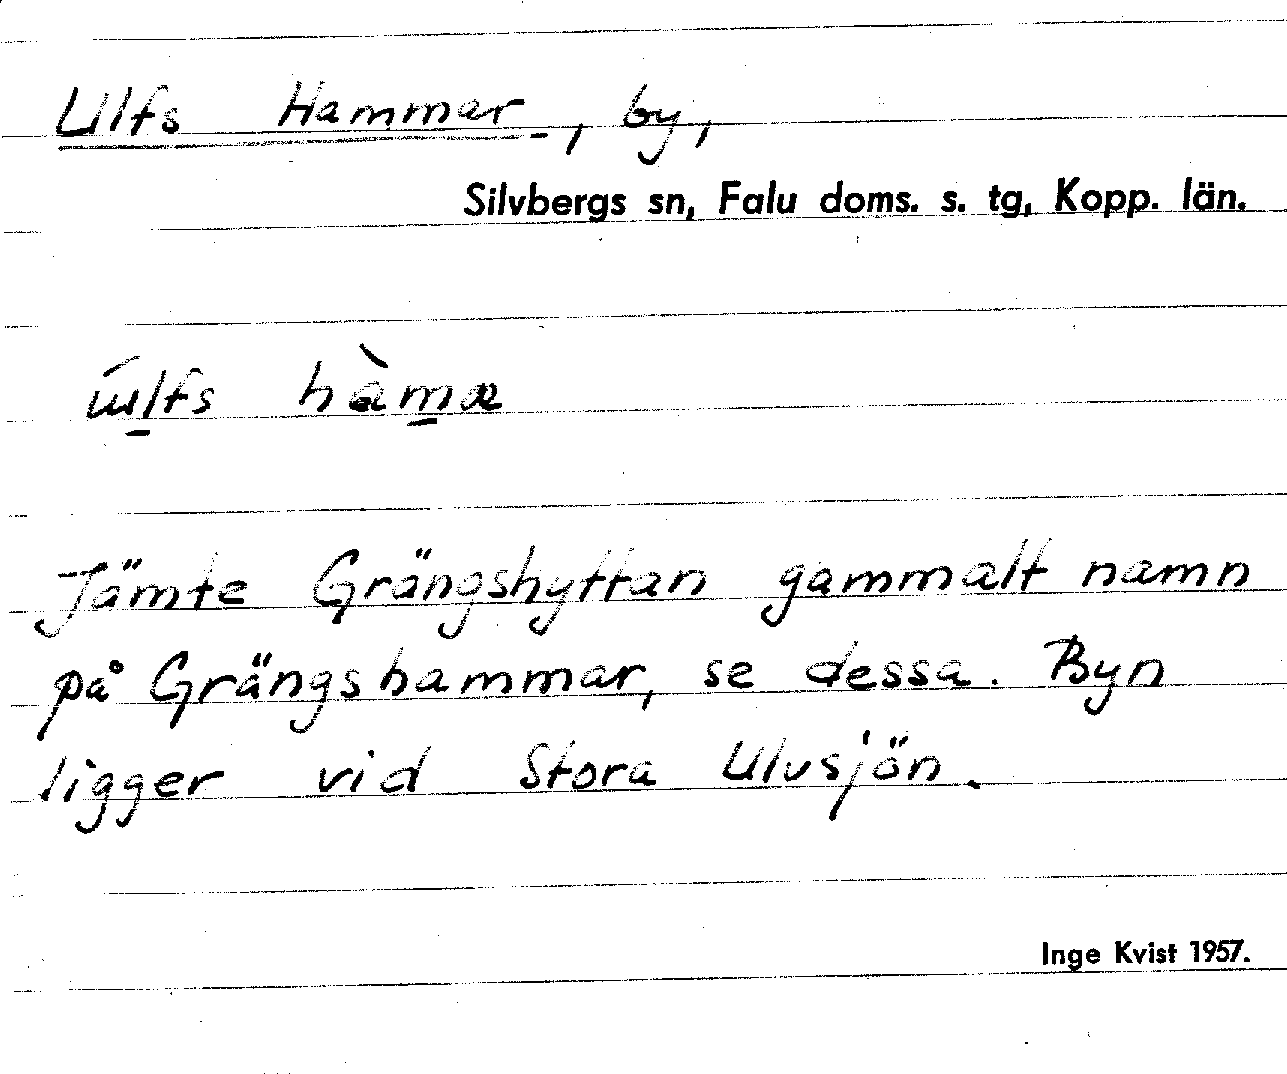 Ulfs Hammar, by,
Silvbergs sn, Falu doms. s. tg, Kopp. län.
úlfs hàmæ
Jämte Grängshyttan gammalt namn
på Grängshammar, se dessa. Byn
ligger vid Stora Ulvsjön.
Inge Kvist 1957.